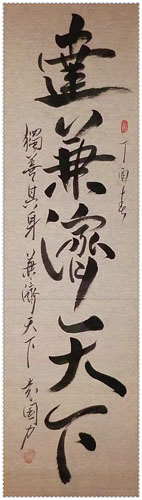 丁酉春
達兼濟天下
獨善其身 兼濟天下 袁國力